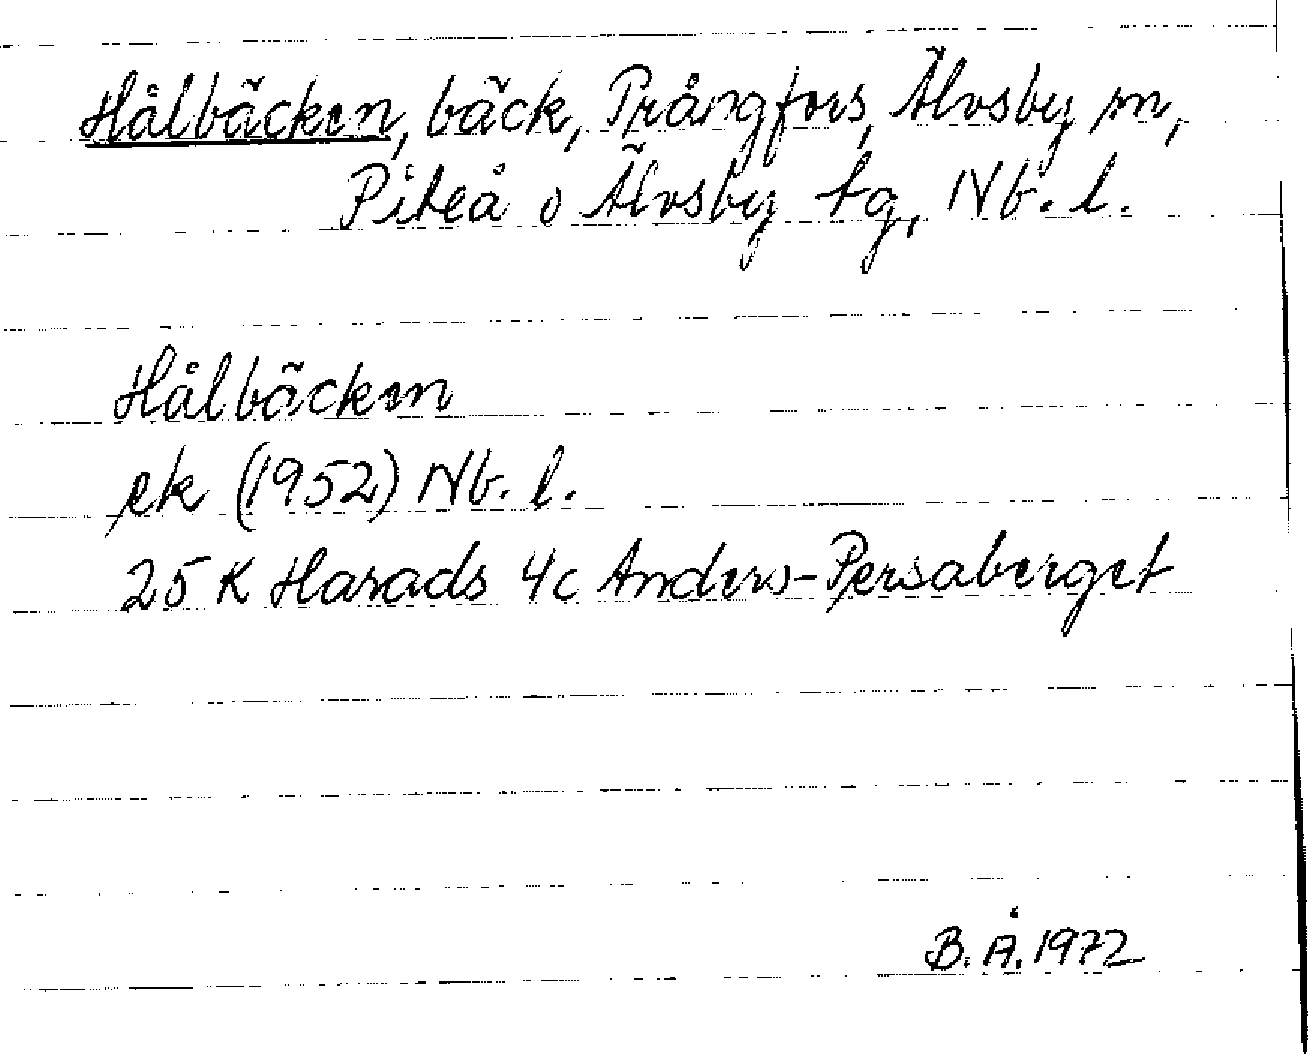 Hålbäcken, bäck, Trångfors, Älvsby sn,
Piteå o Älvsby tg, Nb. l.
Hålbäcken
ek (1952) Nb. l.
25 K Harads 4c Anders-Persaberget
B. Å. 1972